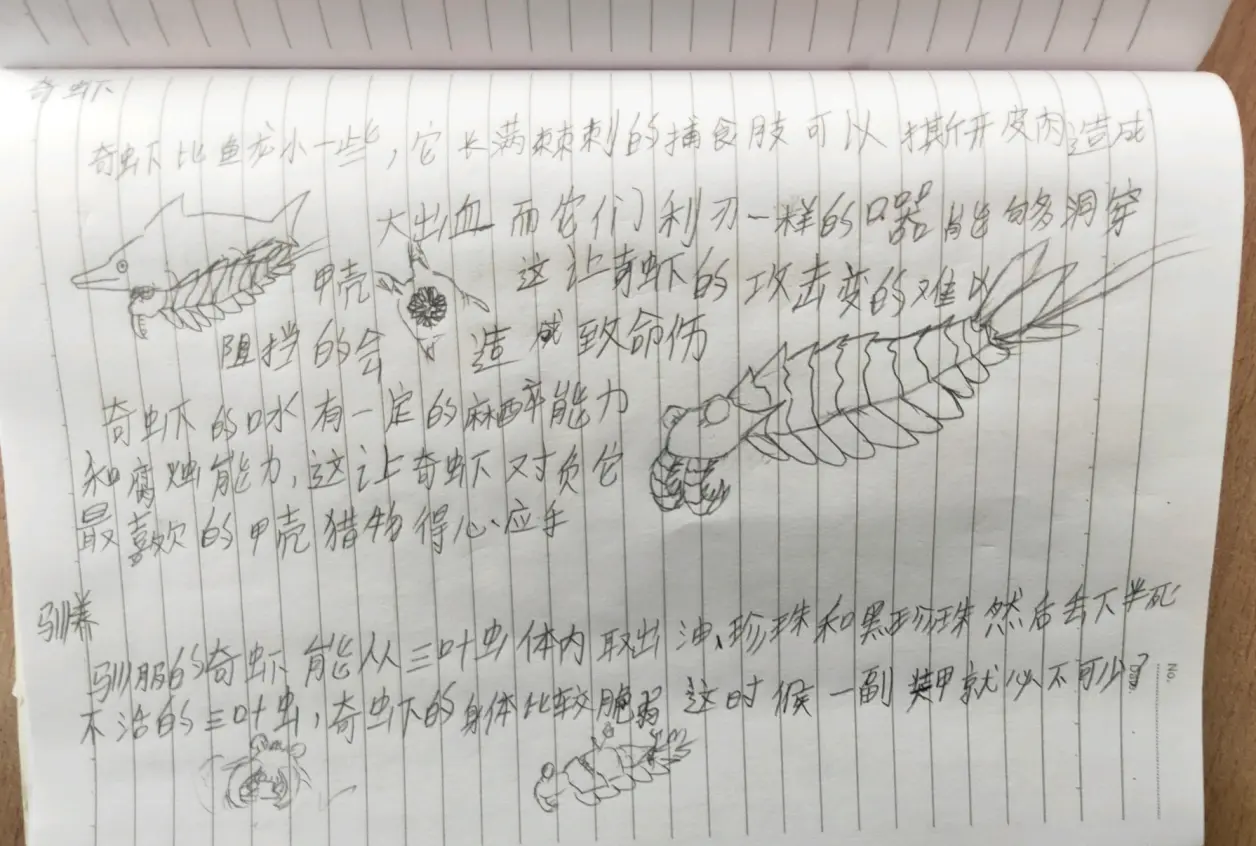 奇虾
奇虾比鱼龙小一些，它长满棘刺的捕食肢可以撕开皮肉造成
大出血而它们利刃一样的口器能够洞穿
甲壳 这让奇虾的攻击变的难以
阻挡的会 造成致命伤
奇虾的口水有一定的麻醉能力
和腐蚀能力，这让奇虾对负它
最喜欢的甲壳猎物得心应手
驯养
驯服的奇虾能从三叶虫体内取出油、珍珠和黑珍珠然后丢下半死
不活的三叶虫，奇虾的身体比较脆弱 这时候一副装甲就必不可少了
No.
Date